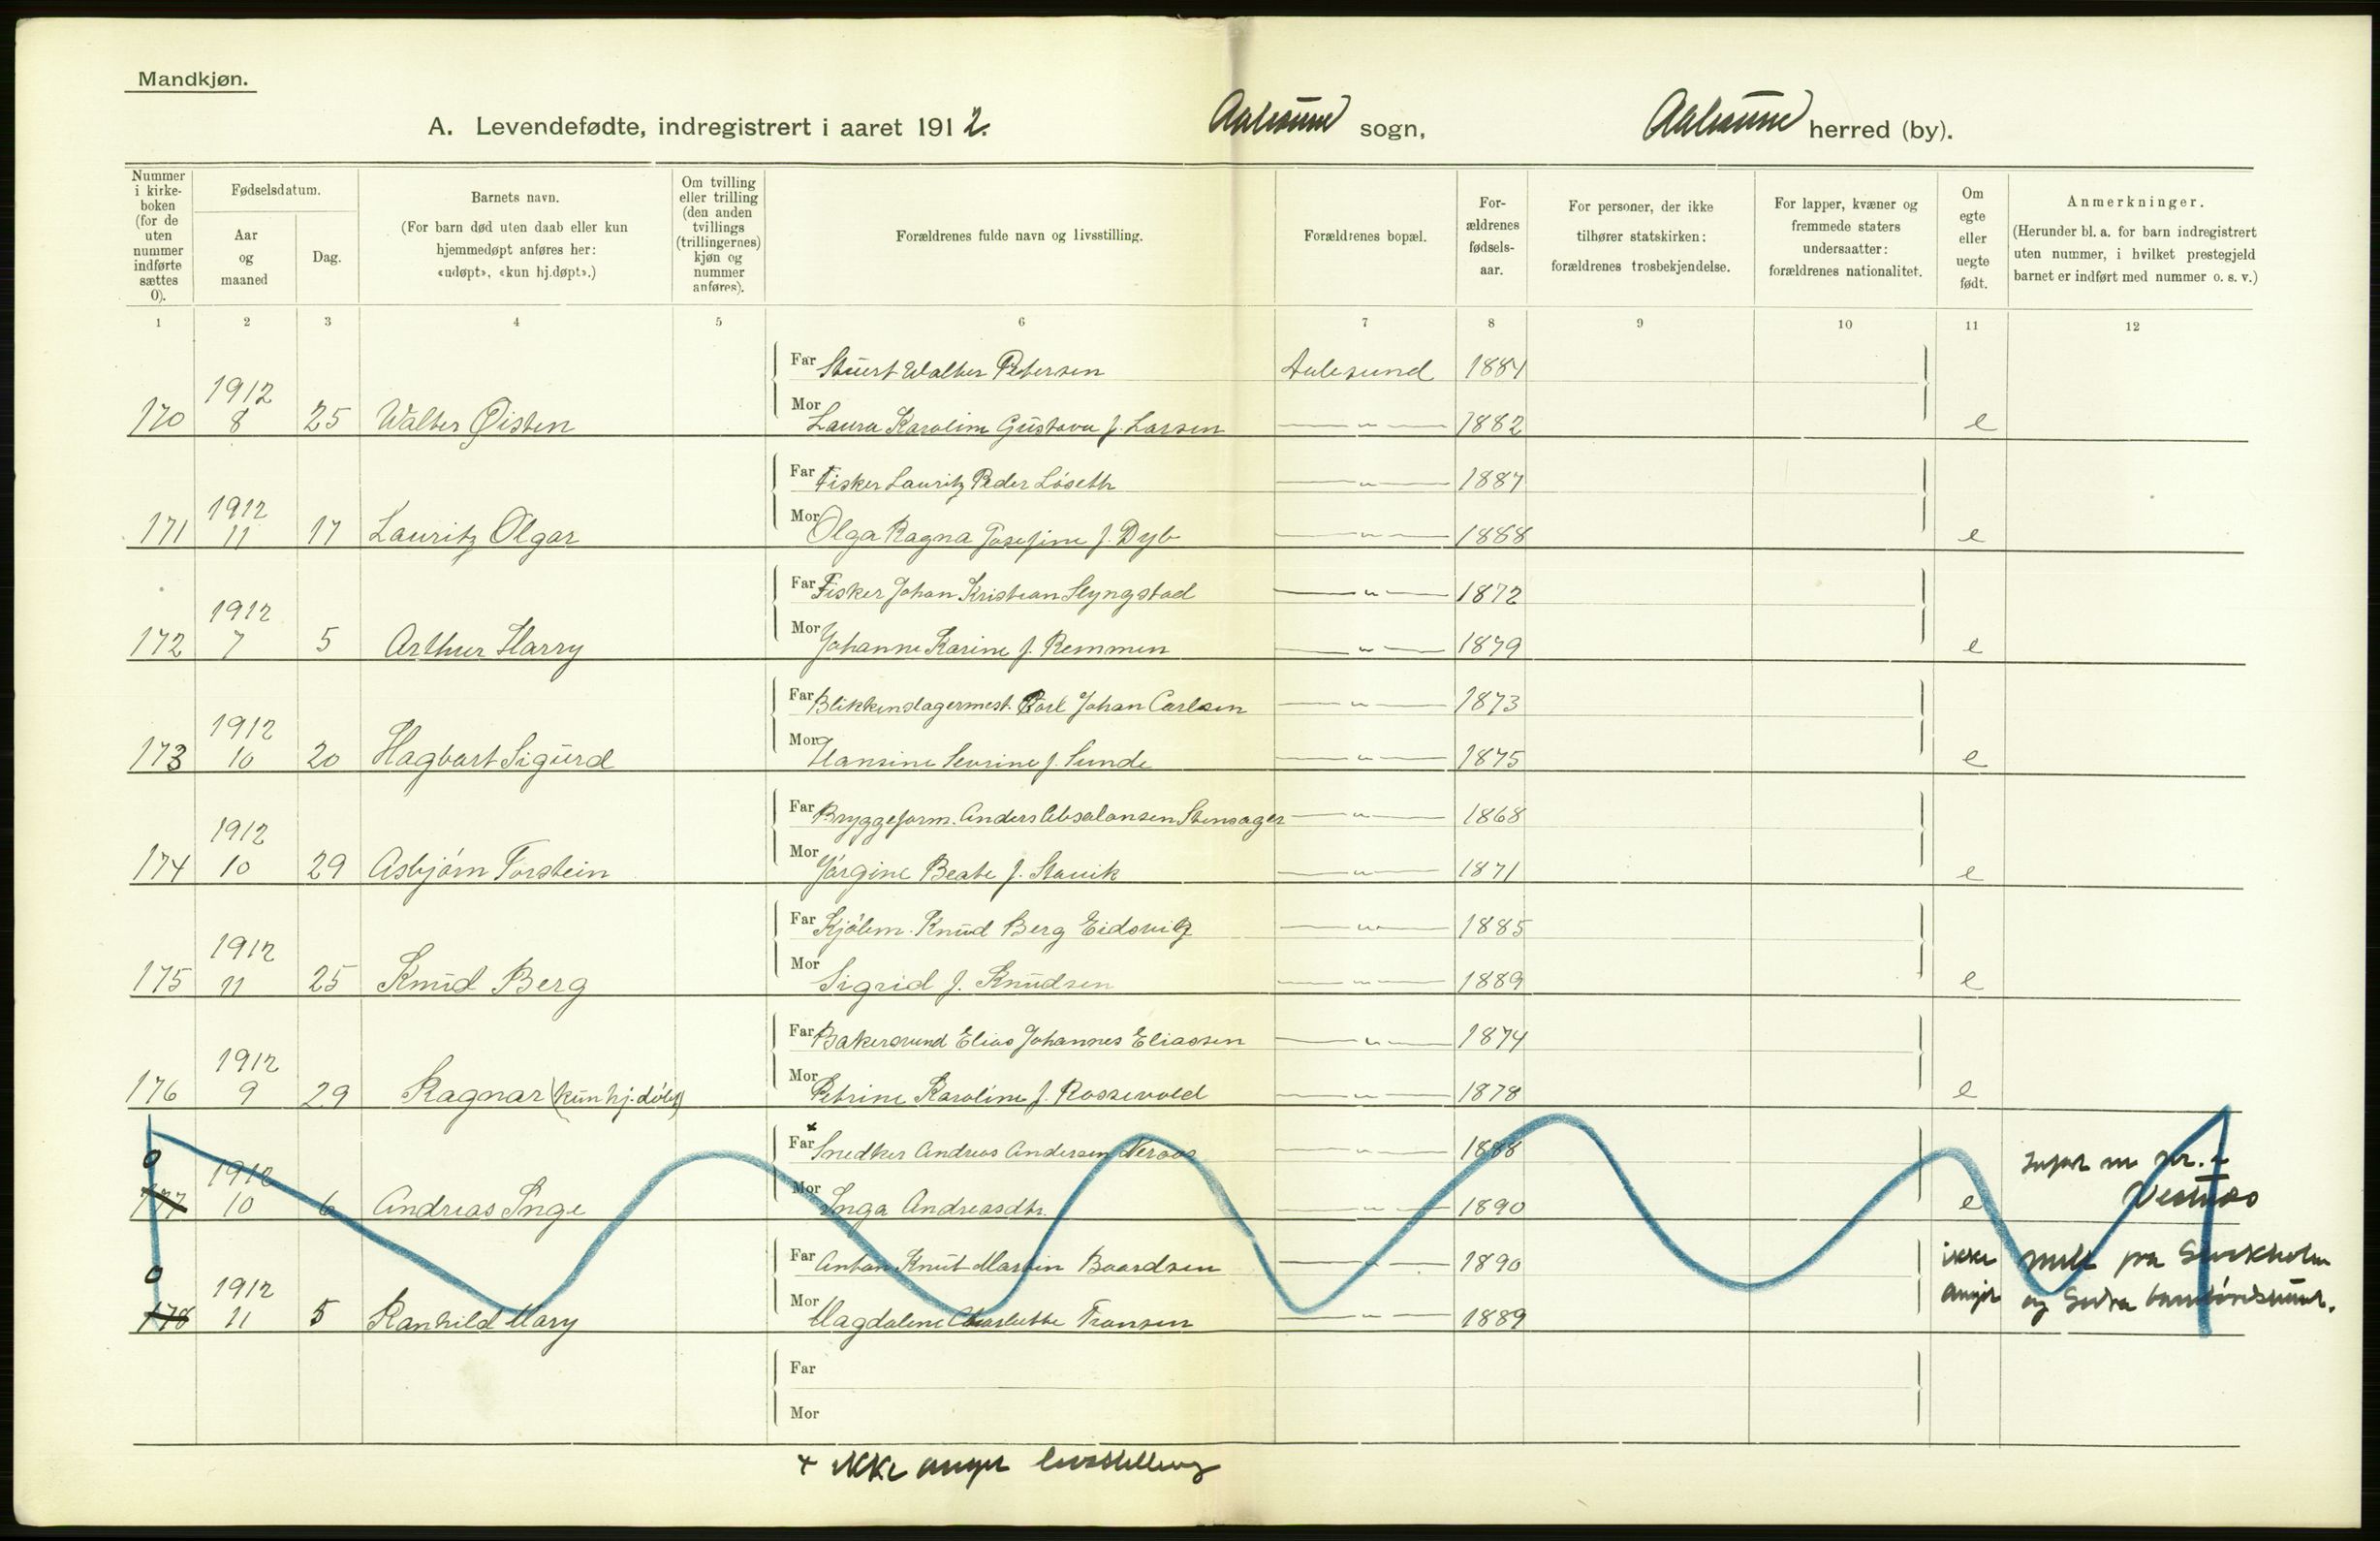 Mandkjøn.
A. Levendefødte, indregistrert i aaret 1912. Aalesund sogn, Aalesund herred (by).
Nummer i kirke-boken (for de uten nummer indførte sættes 0).
Fødselsdatum.
Aar og maaned
Dag.
Barnets navn.
(For barn død uten daab eller kun hjemmedøpt anføres her: «udøpt», «kun hj.døpt».)
Om tvilling eller trilling (den anden tvillings (trillingernes) kjøn og nummer anføres).
Forældrenes fulde navn og livsstilling.
Forældrenes bopæl.
For-ældrenes fødsels-aar.
For personer, der ikke tilhører statskirken: forældrenes trosbekjendelse.
For lapper, kvæner og fremmede staters undersaatter: forældrenes nationalitet.
Om egte eller uegte født.
Anmerkninger.
(Herunder bl. a. for barn indregistrert uten nummer, i hvilket prestegjeld barnet er indført med nummer o. s. v.)
1 2 3 4 5 6 7 8 9 10 11 12
Far Stuert Walter Petersen Aalesund 1884
170 1912 8 25 Walter Øisten Mor Laura Karoline Gustava f. Larsen —〃— 1882 e
Far Fisker Lauritz Peder Löseth —〃— 1887
171 1912 11 17 Lauritz Olgar Mor Olga Ragna Josefine f. Dyb —〃— 1888 e
Far Fisker Johan Kristian Slyngstad —〃— 1872
172 1912 7 5 Arthur Harry Mor Johanne Karine f. Remmen —〃— 1879 e
Far Blikkenslagermest. Carl Johan Carlsen —〃— 1873
173 1912 10 20 Hagbart Sigurd Mor Hansine Sevrine f. Sunde —〃— 1875 e
Far Bryggeform. Anders Absalonsen Stensager —〃— 1868
174 1912 10 29 Asbjörn Torstein Mor Jörgine Beate f. Stavik —〃— 1871 e
Far Kjölem. Knud Berg Eidsvig —〃— 1885
175 1912 11 25 Knud Berg Mor Sigrid f. Knudsen —〃— 1889 e
Far Bakersvend Elias Johannes Eliassen —〃— 1874
176 1912 9 29 Ragnar (kun hj. döbt) Mor Petrine Karoline f. Rossevold —〃— 1878 e
Far x Snedker Andreas Andersen Neraas —〃— 1888
0 177 1912 10 6 Andreas Inge Mor Inga Andreasdtr. —〃— 1890 e nr. Vestnæs
Far Anton Knut Martin Baardsen —〃— 1890
0 178 1912 11 5 Ranhild Mary Mor Magdalene Charlotte Fransen —〃— 1889 ikke angit
Far
Mor
+ ikke angit livsstilling